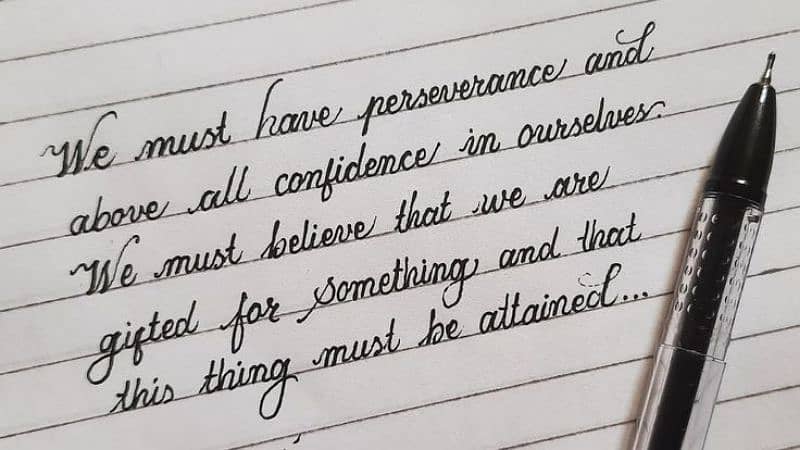 We must have perseverance and
above all confidence in ourselves.
We must believe that we are
gifted for something and that
this thing must be attained...